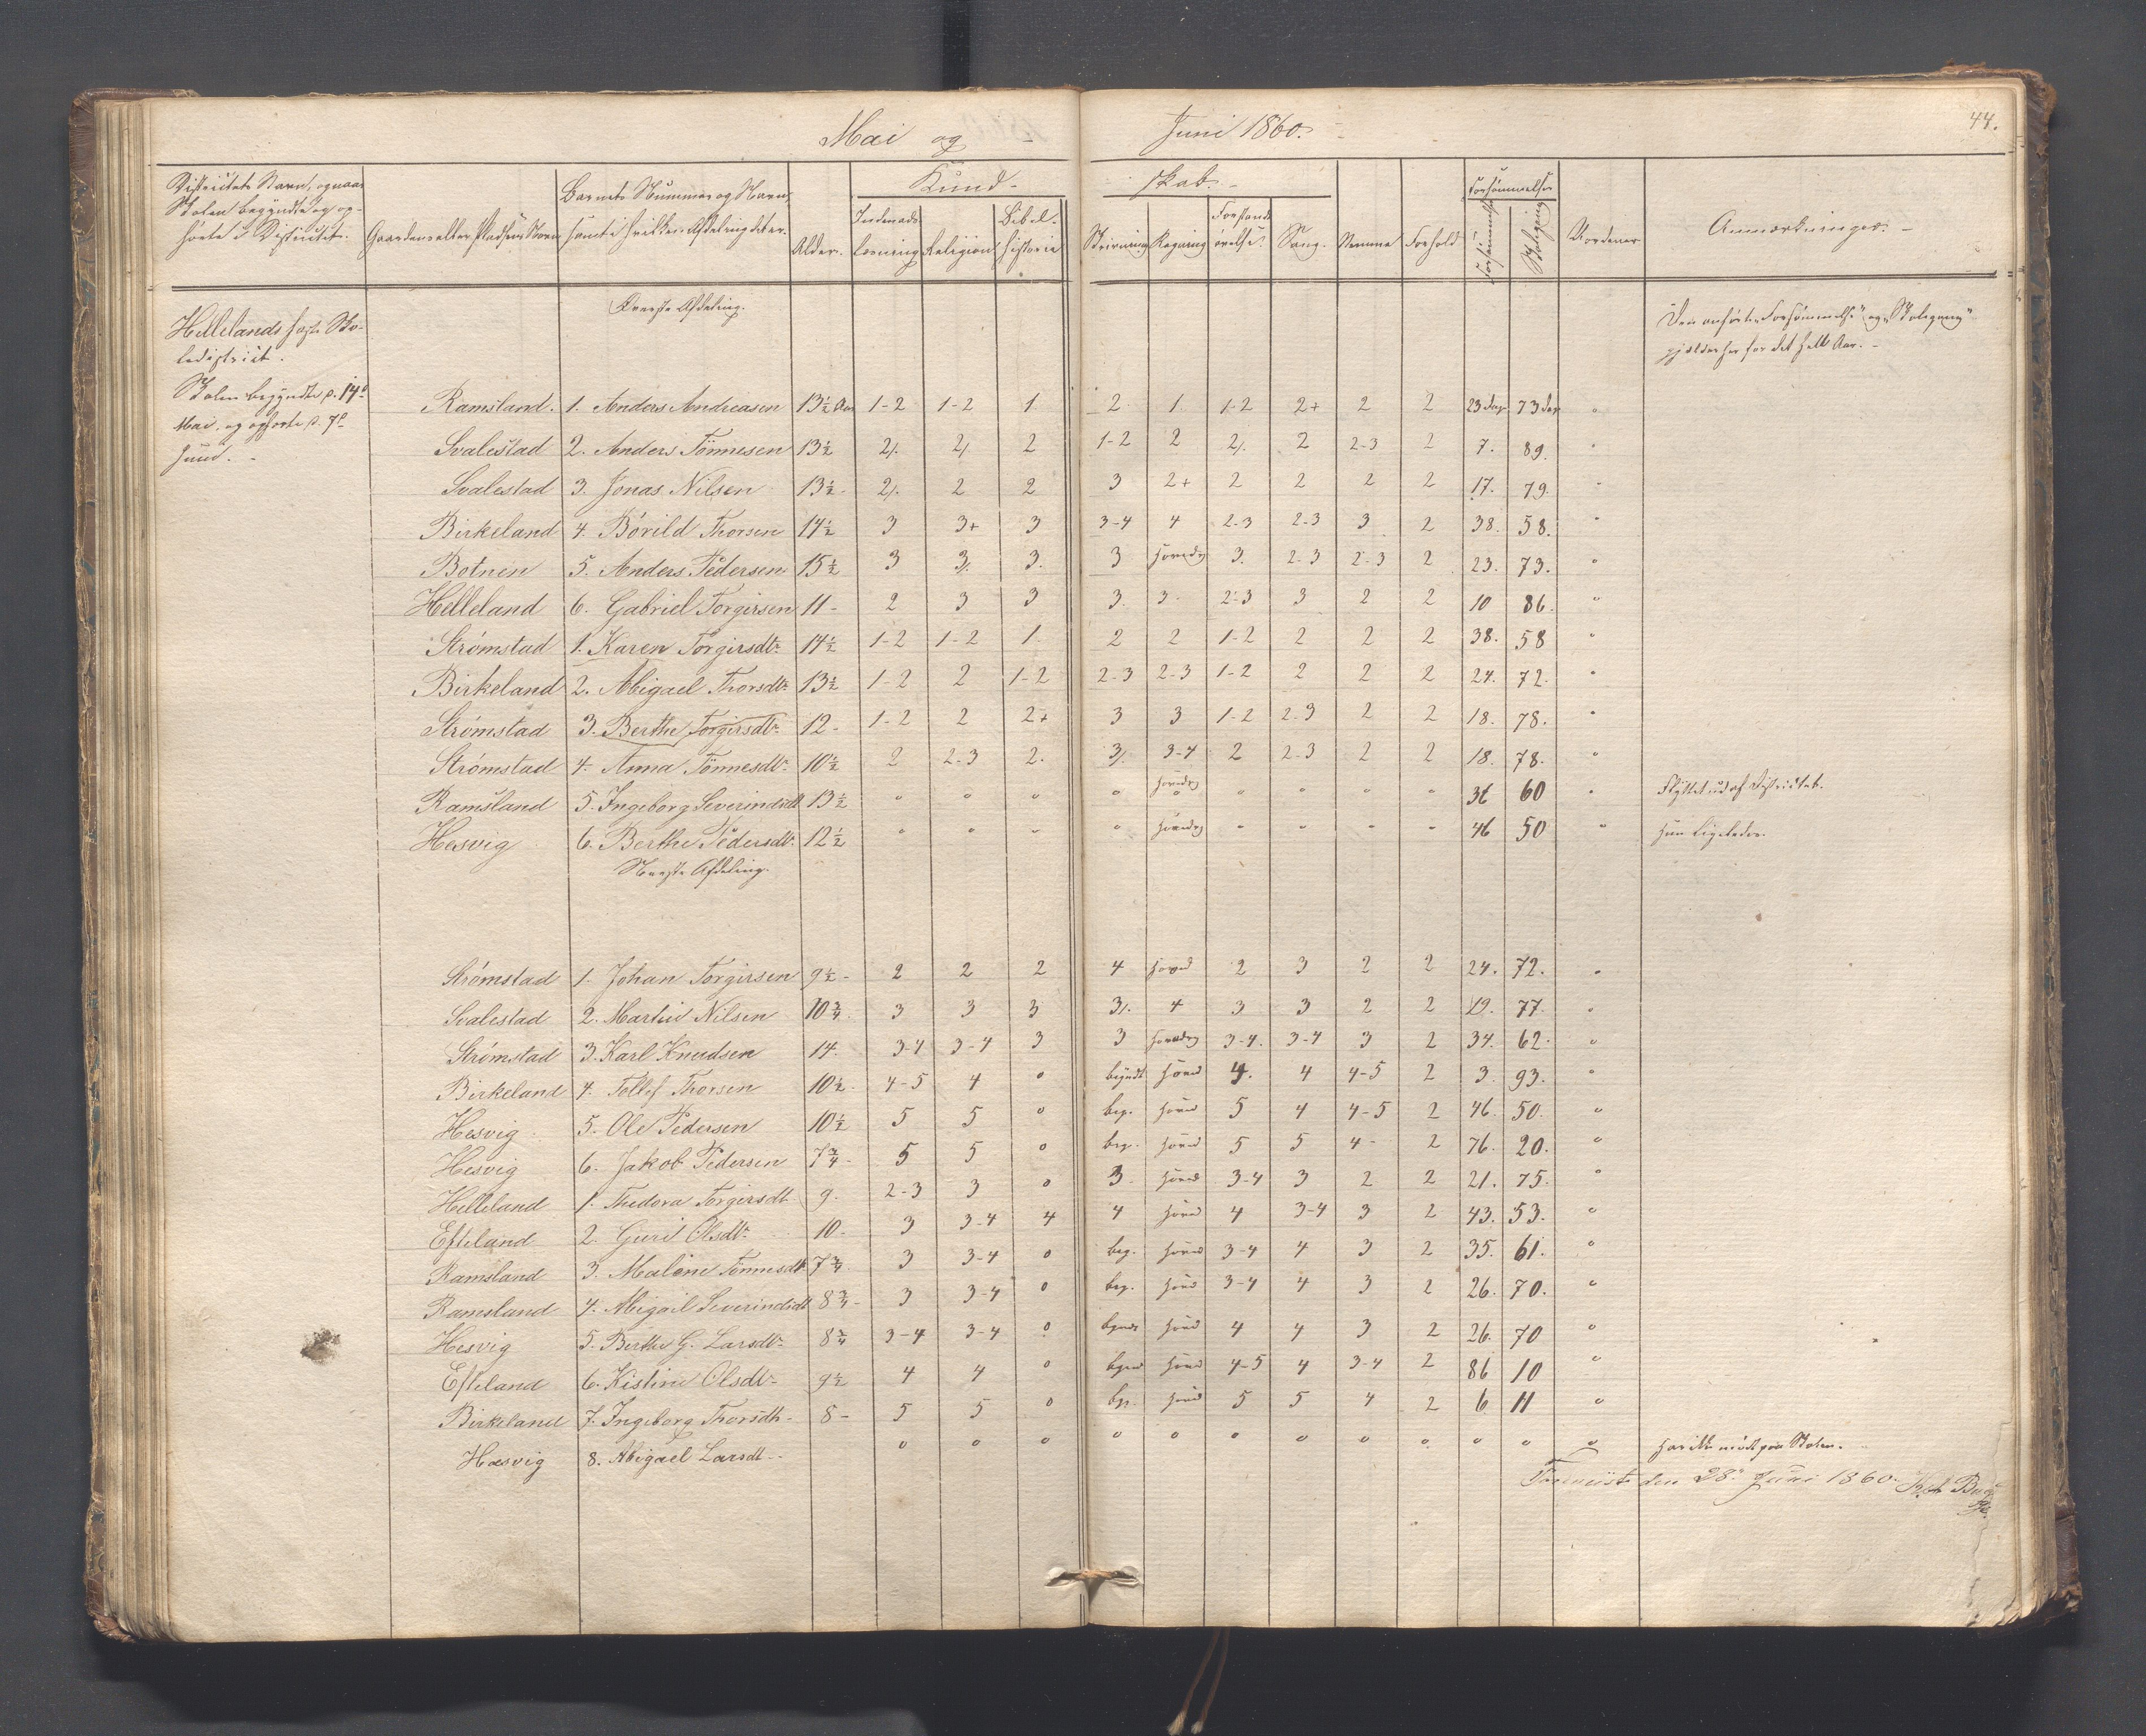 44.
Mai og Juni 1860.
Districtets Navn, og naar Skolen begyndte og ophørte i Districtet. Gaardens eller Pladsens Navn Barnets Nummer og Navn, samt i hvilken Afdeling det er. Alder. Kund- skab. Forsømmelse Anmærkninger.
Indenads Læsning Religion Bibel-historie Skrivning Regning Forstands øvelse. Sang. Nemme Forhold Forsømmelse Skolegang
Øverste Afdeling.
Hellelands faste Sko-
ledistrict.
Den anførte "Forsømmelse" og "Skolegang"
gjælder her for det hele Aar. -
Skolen begyndte d. 14de
Mai og ophørte d. 7de
Juni. -
Ramsland. 1. Anders Andreasen 13½ Aar 1-2 1-2 1 2 1 1-2 2+ 2 2 23 Dage 73 Dage "
Svalestad 2. Anders Tönnesen 13½ 2/. 2/. 2 1-2 2 2/. 2 2-3 2 7. 89. "
Svalestad 3. Jonas Nilsen 13½ 2/. 2 2 3 2+ 2 2 2 2 17. 79. "
Birkeland 4. Börild Thorsen 14½ 3 3+ 3 3-4 4 2-3 2-3 3 2 38. 58. "
Botnen 5. Anders Pedersen 15½ 3 3/. 3. 3 3. 2-3 2-3 2 23. 73. "
Helleland 6. Gabriel Torgirsen 11 - 2 3 3 3. 3. 2-3 3 2 2 10 86. "
Strømstad 1. Karen Torgirsdtr. 14½ 1-2 1-2 1. 2 2 1-2 2 2 2 38. 58 "
Birkeland 2. Abigael Thorsdtr. 13½ 1-2 2 1-2 2-3 2-3 1-2 2 2 2 24. 72. "
Strømstad 3. Berthe Torgirsdtr. 12 - 1-2 2 2+ 3 3 1-2 2-3 2 2 18. 78. "
Strømstad 4. Anna Tönnesdtr. 10½ 2 2-3 2. 3/. 3-4 2 2-3 2 2 18. 78. "
Ramsland 5. Ingeborg Severinsdtr 13½ " " " " " " " " " 36 60 " Flyttet ud af Districtet.
Hesvig 6. Berthe Pedersdtr. 12½ " " " " " " " " 46 50 " Hun ligeledes.
Nederste Afdeling.
Strømstad 1. Johan Torgirsen 9½ - 2 2 2 4 2 3 2 2 24. 72. "
Svalestad 2. Martin Nilsen 10¾ 3 3 3 3/. 4 3 3 2 2 19. 77. "
Strømstad 3. Karl Knudsen 14. 3-4 3-4 3 3 3-4. 3-4 3 2 34. 62. "
Birkeland 4. Tollef Thorsen 10½ 4-5 4 o begyndt 4. 4 4-5 2 3 93. "
Hesvig 5. Ole Pedersen 10½ 5 5 o beg. 5 4 4-5 2 46. 50. "
Hesvig 6. Jakob Pedersen 7¾ 5 5 o beg. 5 5 4 - 2 76. 20. "
Helleland 1. Thedora Torgirsdtr 9. 2-3 3 o 3. 3-4 3 2 2 21. 75. "
Efteland 2. Guril Olsdtr. 10 - 3 3-4 4 4 4 3-4 3 2 43. 53. "
Ramsland 3. Malene Tönnesdtr 7¾ 3 3-4 o beg. 3-4 4 3 2 35. 61. "
Ramsland 4. Abigail Severinsdtr 8¾ - 3 3-4 o beg. 3-4 4 3 2 26. 70. "
Hesvig 5. Berthe G. Larsdtr. 8¾ 3-4 3-4 o 4 4 3 2 26. 70 "
Efteland 6. Kistine Olsdtr. 9½ 4 4 o 4-5 4 3-4 2 86 10 "
Birkeland 7. Ingeborg Thorsdtr. 8 - 5 5 o beg. 5 5 4 2 6 11 "
Hæsvig 8. Abigael Larsdtr. o o o o o o o o o o o o Har ikke mødt paa Skolen.
Foreviist den 28de Juni 1860.